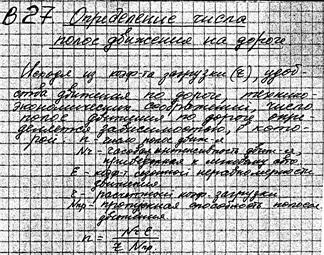 В27 Определение числа
полос движения на дороге
Исходя из коэф-та загрузки (z), удоб-
ства движения по дороге технико-
экономических соображений, число
полос движения по дороге опре-
деляется зависимостью, в кото-
рой n - число полос движ-я
Nч - часовая интенсивность движ-я,
приведенная к легковому авто.
Е - коэф-т сезонной неравномерности
движения
z - расчетный коэф. загрузки
Nпр. - пропускная способность полосы
движения
n = Nч Е / z Nпр.